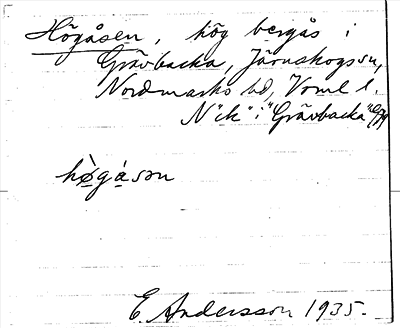 Högåsen, hög bergås i
Grävbacka, Järnskogs sn,
Nordmarks hd, Vrml l.
N "ck" i "Grävbacka"
hø̀gåsən
E. Andersson 1935.